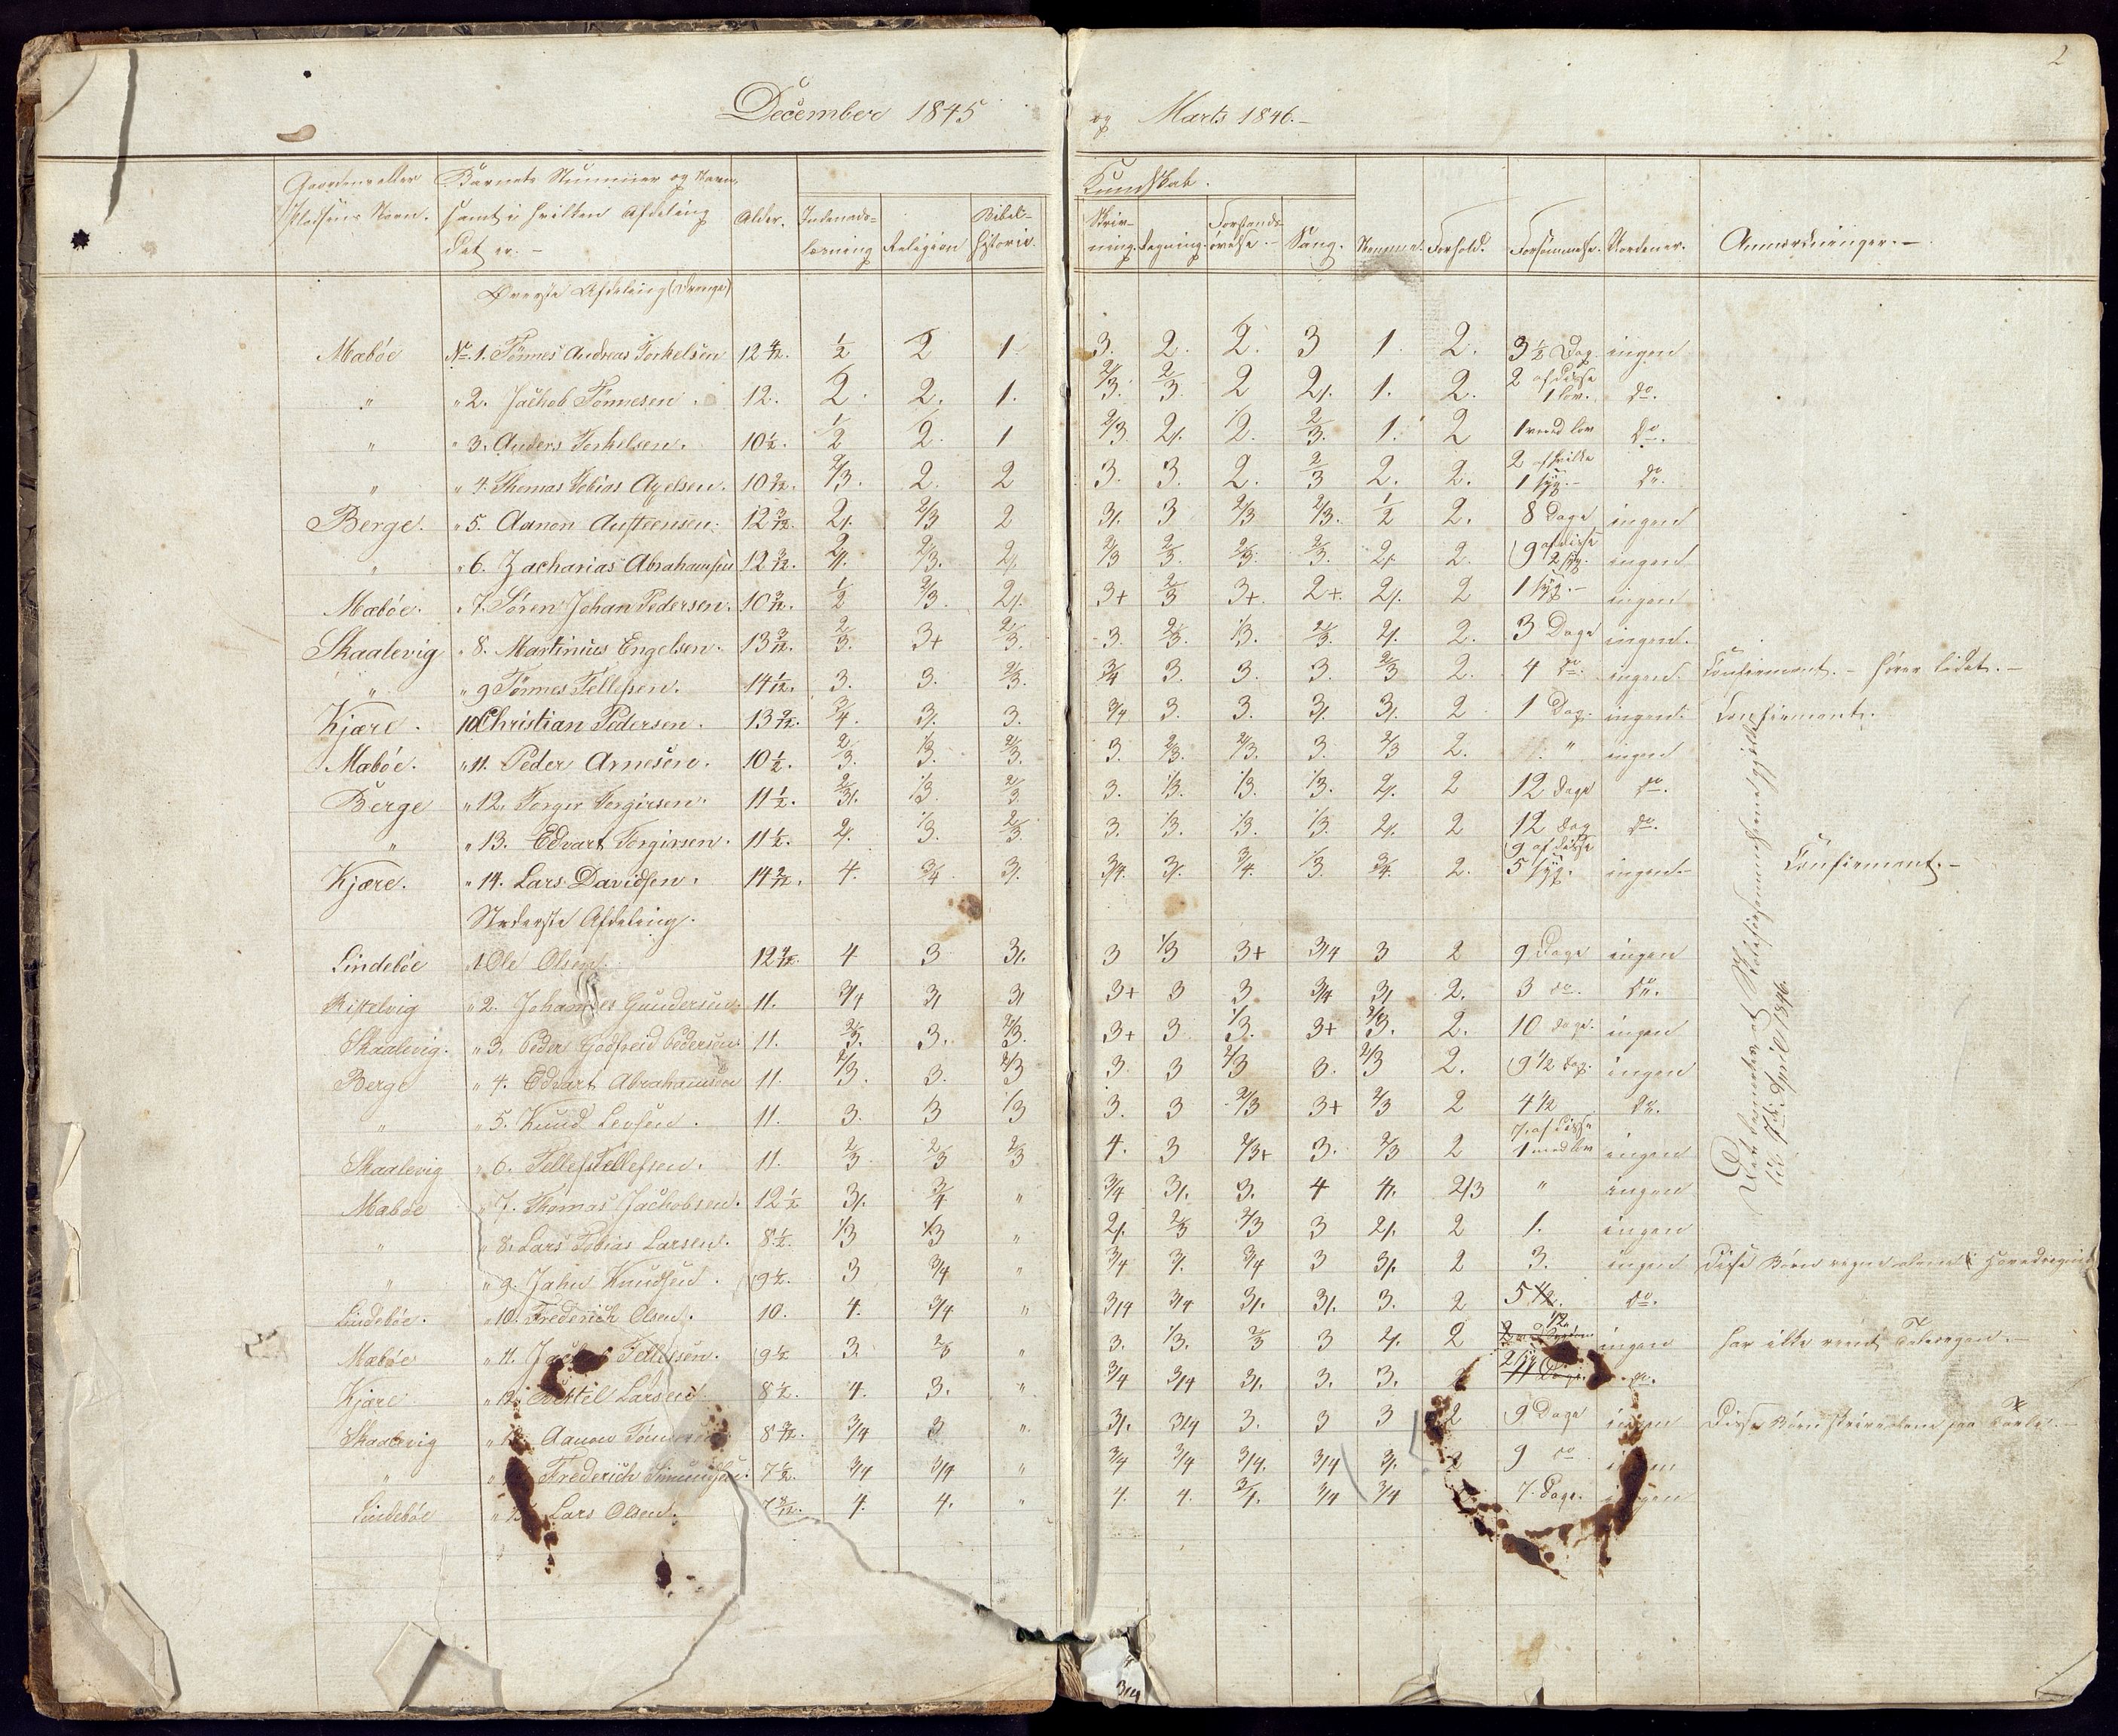 2
December 1845 og Marts 1846.-
Gaardens eller Barnets Nummer og Navn, Kundskab.
Pladsens Navn. samt i hvilken Afdeling Alder. Indenads- Religion Bibel- Skriv- Regning. Forstands- Sang. Forhold. Forsømmelser. Anmærkninger.-
det er.- læsning historie. ning. øvelse.-
Øverste Afdeling (Drenge)
Mæbøe No. 1. Tønnes Andreas Torkelsen 12 4/12. 1/2 2 1. 3. 2. 2. 3 1. 2. 3 1/2 Dag. ingen
" " 2. Jachob Tønnesen. 12. 2. 2. 1. 2/3. 2/3. 2 2/. 1. 2. 2 af disse 1 lov. do.
" " 3. Anders Torkelsen. 10 1/2. 1/2 2. 1 2/3. 2/. 2. 2/3. 1. 2 1 med lov do.
" " 4. Thomas Tobias Agelsen. 10 9/12. 2/3. 2. 2 3. 3. 2. 2/3 2. 2. 2 af hvilke 1 syg.- do.
Berge. " 5. Aanon Austeensen. 12 3/12. 2/. 2/3 2 3/. 3 2/3 2/3. 1/2 2. 8 Dage ingen
" " 6. Zacharias Abrahamsen 12 3/12. 2/. 2/3. 2/. 2/3 2/3. 2/3. 2/3. 2/. 2. 9 af disse 2 syg. ingen
Mæbøe. " 7. Søren Johan Pedersen. 10 3/12. 1/2 2/3. 2/. 3+ 2/3 3+. 2+. 2/. 2 1 syg.- ingen
Skaalevig " 8. Martinius Engelsen. 13 3/12. 2/3. 3+ 2/3. 3. 2/3. /3. 2/3. 2/. 2. 3 Dage ingen.
" " 9 Tønnes Tellefsen. 14 1/12. 3. 3. 2/3. 3/4 3. 3. 3. 2/3 2. 4 do. ingen. Confirmant.- hører lidet.-
Kjære. 10 Christian Pedersen. 13 9/12. 3/4. 3/. 3. 3/4 3. 3. 3/. 3/. 2 1 Dag. ingen. Confirmant.
Mæbøe. " 11. Peder Arnesen. 10 1/2. 2/3. /3. 2/3. 3. 2/3. 2/3. 3. 2/3 2. " ingen
Berge " 12. Torger Torgirsen. 11 1/2. 2/3/. /3. 2/3. 3. /3. /3. /3. 2/. 2 12 Dage do.
" " 13. Edvart Torgirsen. 11 1/2. 2/. /3. 2/3. 3. /3. /3. /3. 2/. 2 12 Dag do.
Kjære. " 14. Lars Davidsen. 14 2/12. 4. 3/4. 3/. 3/4. 3/. 3/4. /3. 3/4. 2. 9 af disse 5 syg. ingen.- Confirmant.-
Nederste Afdeling.
Lindebøe 1 Ole Olsen. 12 9/12. 4 3 3/. 3 /3 3+ 3/4 3 2 9 Dage ingen
" 2. Johannes Gundersen. 11. 3/4 3/ 3/ 3+ 3 3 3/4 3/ 2. 3 do. do.
Skaalevig. " 3. Peder Godfreid Pedersen. 11. 2/3. 3. 2/3. 3+ 3 /3. 3+ 2/3. 2. 10 dage. ingen
Berge " 4. Edvart Abrahamsen 11. 2/3. 3. 2/3 3. 3 2/3 3. 2/3 2. 9 1/2 Dag. ingen
" " 5. Knud Levsen. 11. 3. /3 /3 3. 3 2/3 3+ 2/3 2 4 1/2 do.
Skaalevig " 6. Tellef Tellefsen. 11. 2/3 2/3 2/3 4. 3 2/3+ 3. 2/3 2 7 af disse 1 med lov ingen
Mæbøe " 7. Thomas Jachobsen. 12 1/2 3/. 3/4 " 3/4 3/. 3. 4 4. 2/3 " ingen
" " 8. Lars Tobias Larsen. 8 1/2. /3 /3 " 2/. 2/3 2/3 3 2/. 2 1. ingen
" " 9. Jahn Knudsen. 9 1/2. 3 3/4 " 3/4 3/. 3/4 3 3/. 2 3. ingen Disse Børn regne alene i
Lindebøe. " 10. Frederich Olsen. 10. 4. 3/4 " 3/4 3/4 3/. 3/. 3. 2 5 1/2. do.
Mæbøe " 11. Tellefsen. 9 1/2 3. 2/3 " 3. /3. 2/3 3 2/. 2 1/2. ingen har ikke
Kjære " 12. Bertil Larsen 8 1/2. 4. 3. " 3/4 3/4 3/. 3. 3. 2 syg do.
Skaalevig Aanon 8 9/12. 3/4 3 " 3/. 3/4 3. 3 3 2 9 Dage ingen Disse Børn skrive alene paa Tavle.
" Frederich 7 1/2. 3/4 3/4 " 3/4 3/4 3/4. 3/4 3/. 2 9 do
Lindebøe Lars Olsen. 7 9/12. 4. 4. " 4. 4. 3/4. 3/4 3/4 7. Dage. ingen
April 1846.
3/4